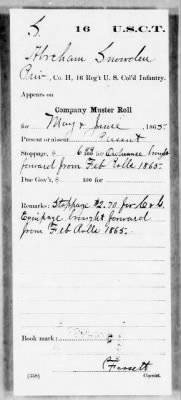 S. 16 U.S.C.T.
Abraham Snowden
Priv., Co. H, 16 Reg't U. S. Col'd Infantry.
Appears on
Company Muster Roll
for May & June, 1865.
Present or absent Present
Stoppage, $ 6 00/100 for Ordnance brought
forward from Feb Rolls 1865.
Due Gov't, $ 100 for
Remarks: Stoppage $2.70 for C & G.
Equipage brought forward
from Feb Rolls 1865.
Book mark:
Fassett
(358) Copyist.